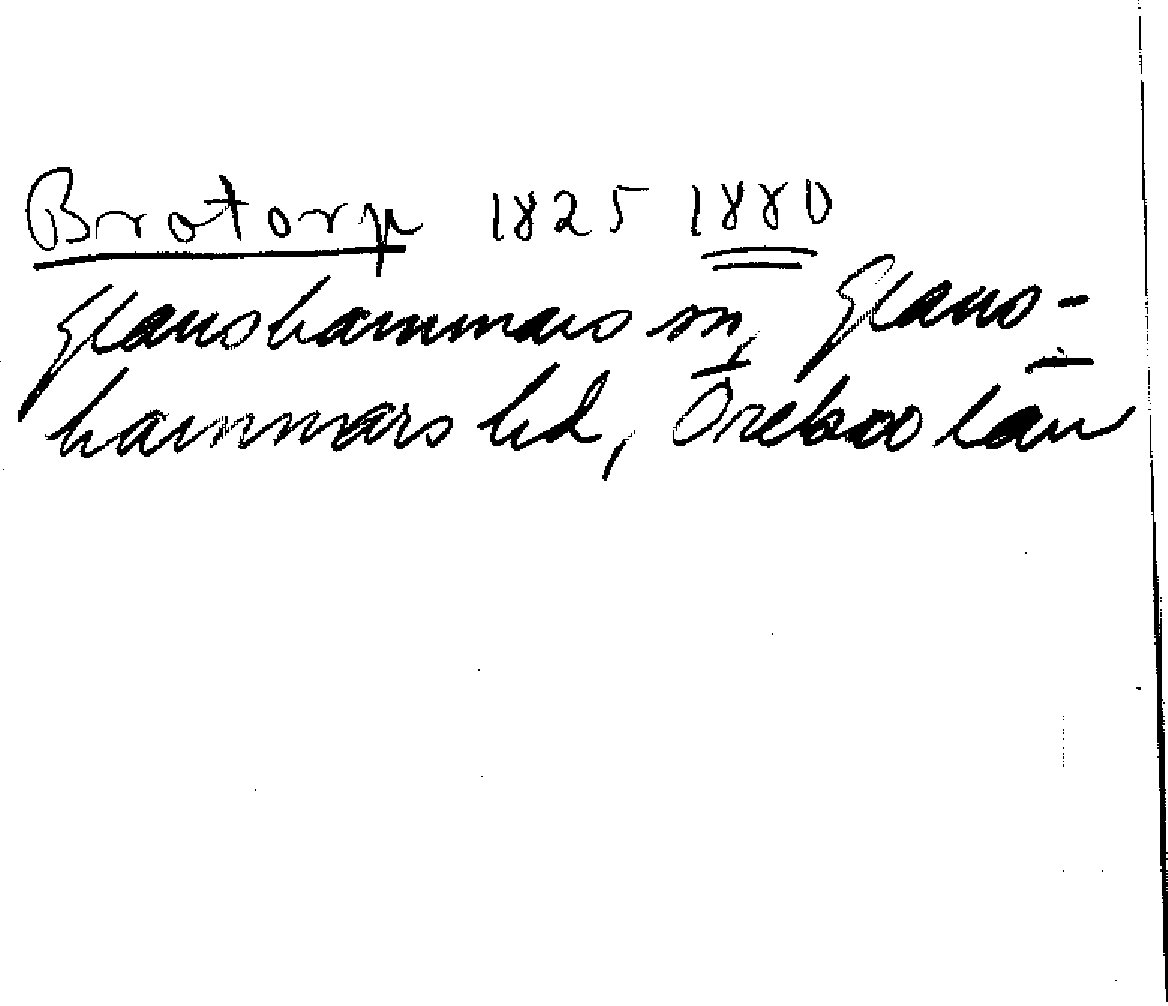 Brotorp 1825 1880
Glanshammars sn, Glans-
hammars hd, Örebro län